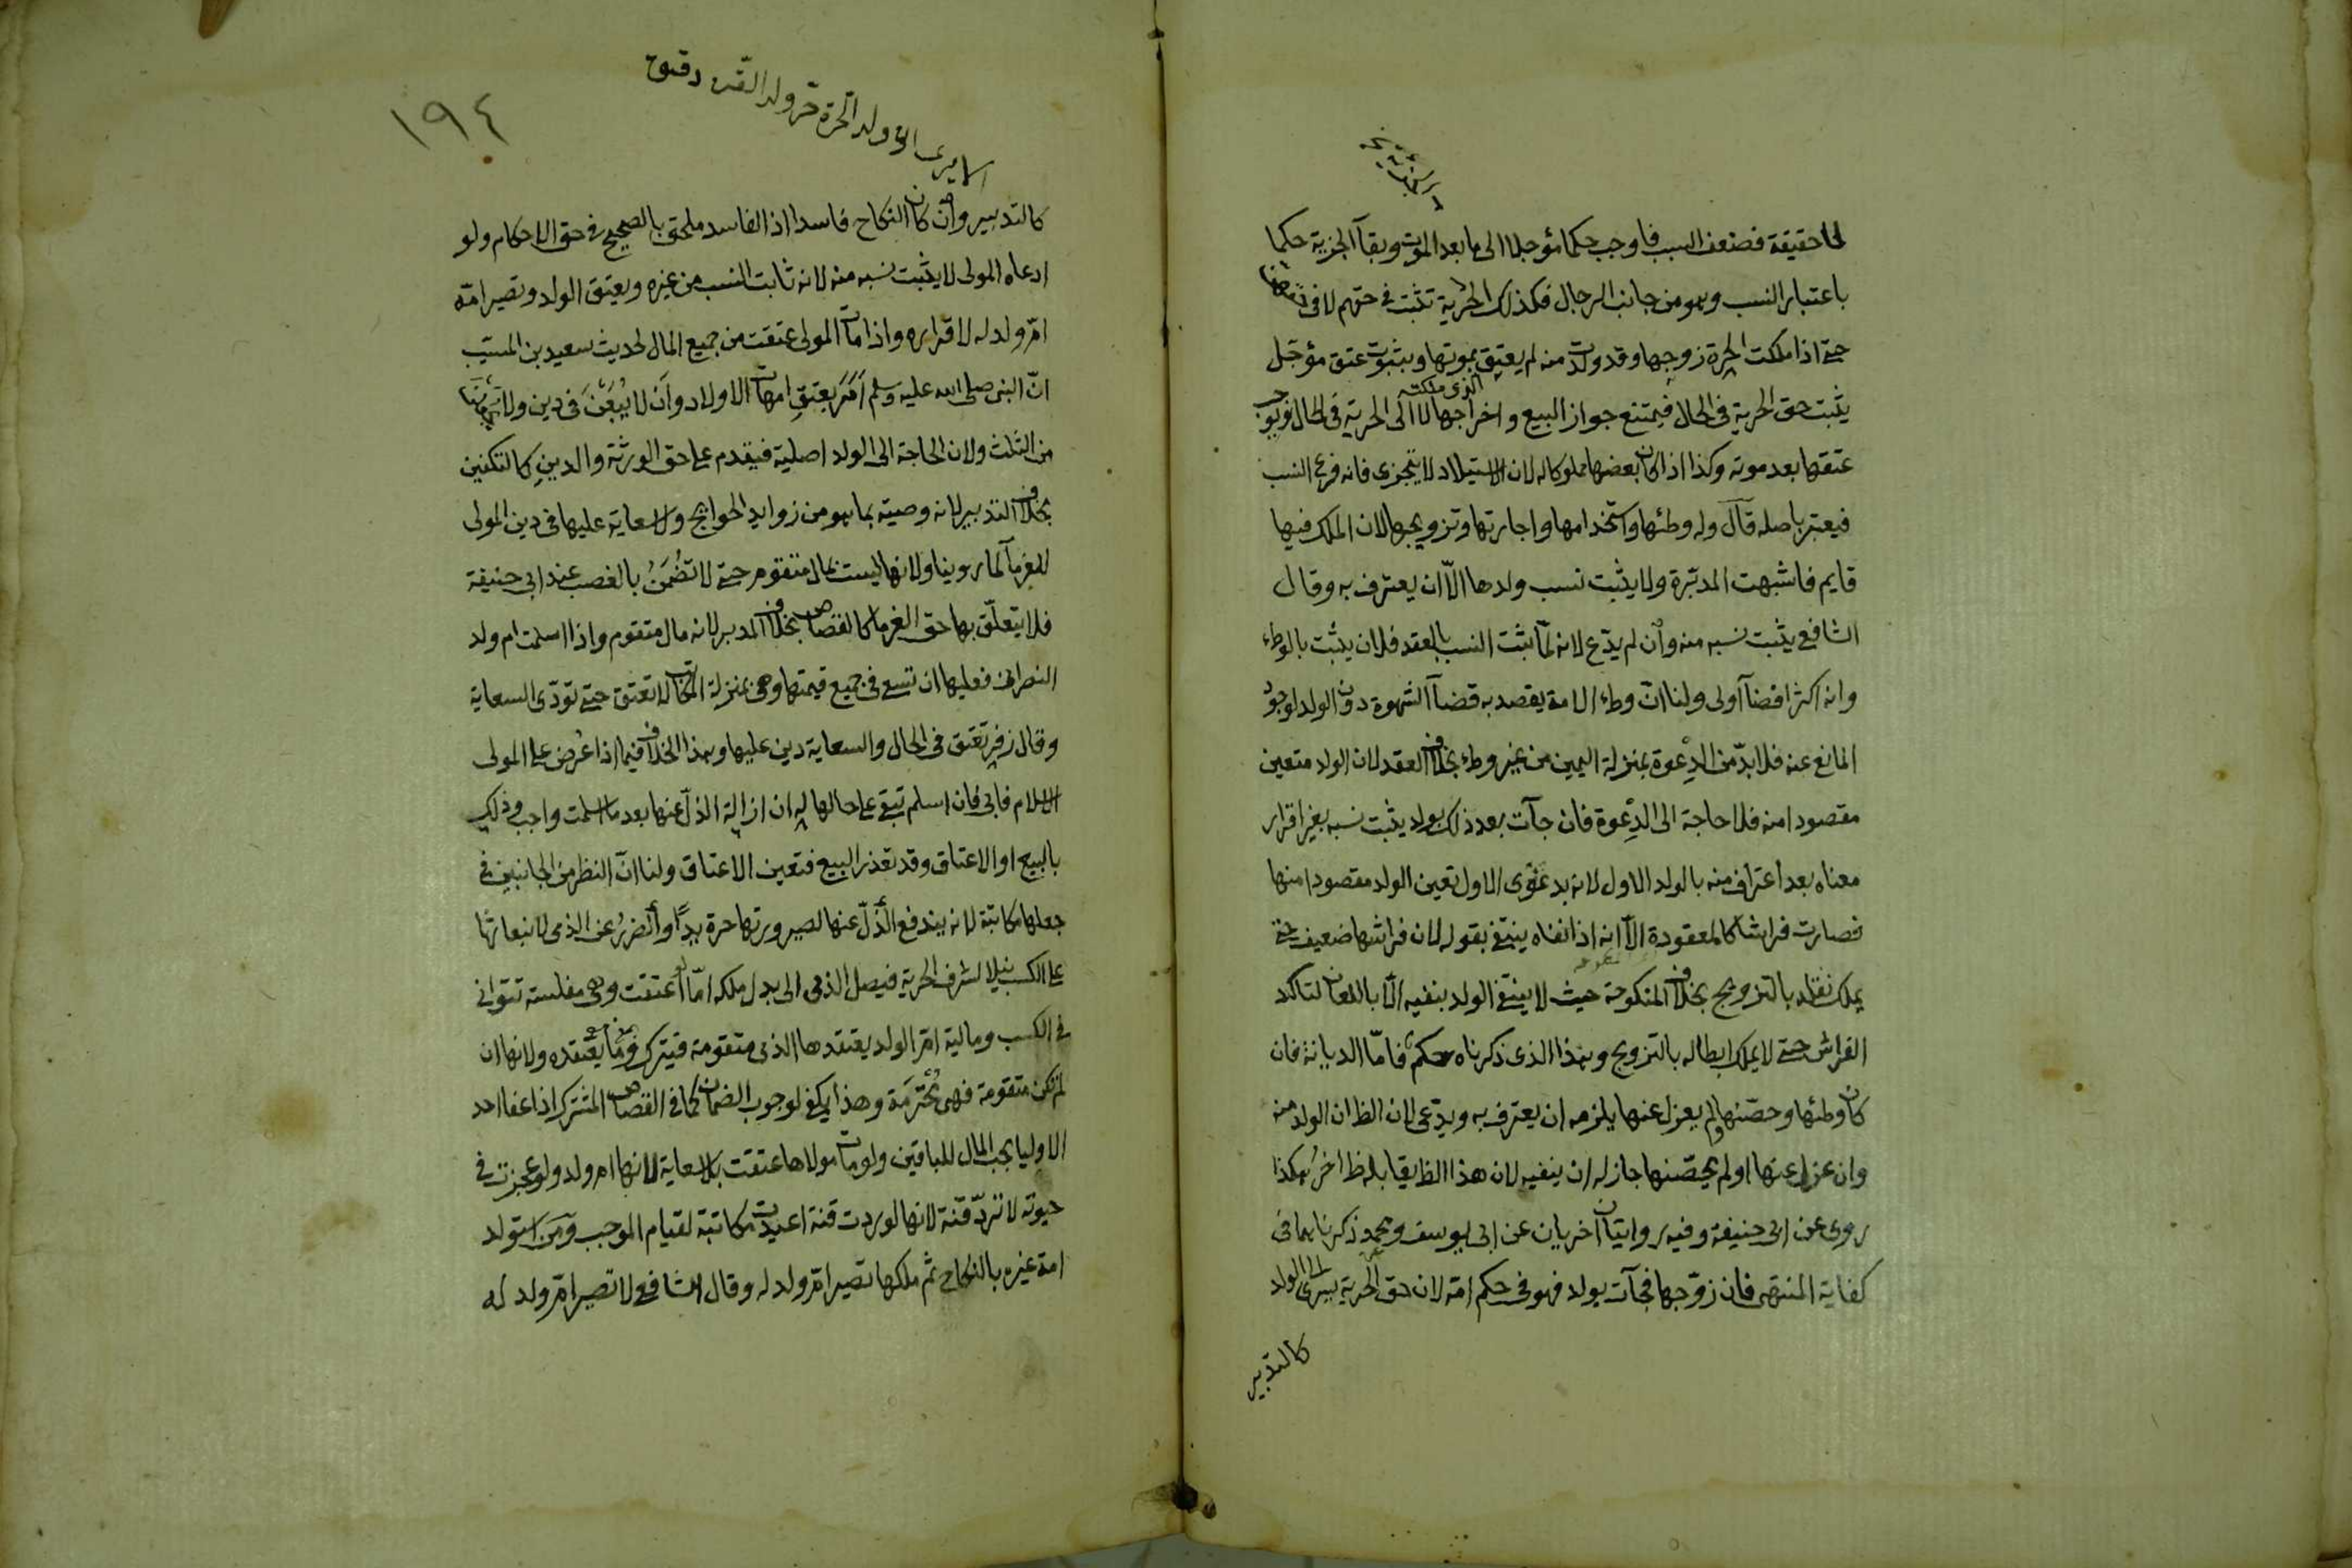 لا حقيقة فضعف السبب فاوجب حكما مؤجلا الى ما بعد الموت وبقآ الجزية حكما
باعتبار النسب وهو من جانب الرجال فكذلك الحرية تثبت فى حقهم لا فى حقهن
حتى اذا ملكت الحرة زوجها وقد ولدت منه لم يعتق بموتها وبثبوت عتق مؤجل
الذى ملكته
يثبت حق الحرية فى الحال فيمتنع جواز البيع واخراجها لا الى الحرية فى الحال ويوجب
عتقها بعد موته وكذا اذا كان بعضها مملوكا له لان الاستيلاد لا يتجزى فانه فرع النسب
فيعتبر باصله قال وله وطئها واستخدامها واجارتها وتزويجها لان الملك فيها
قايم فاشبهت المدبرة ولا يثبت نسب ولدها الّا ان يعترف به وقال
الشافعي يثبت نسبه منه وان لم يدّع لانه لمّا ثبت النسب بالعقد فلان يثبت بالوطء
وانه اكثر افضآ اولى ولنا انّ وطء الامة يقصد به قضآ الشهوة دون الولد لوجود
المانع عنه فلا بدّ من الدِعوة بمنزلة اليمين من غير وطء بخلاف العقد لان الولد متعين
مقصودا منه فلا حاجة الى الدِعوة فان جآت بعد ذلك بولد يثبت نسبه بغير اقرار
معناه بعد اعتراف منه بالولد الاول لانه بدعوى الاول تعين الولد مقصودا منها
فصارت فراشا كالمعقودة الّا انه اذا نفاه ينتفى بقوله لان فراشها ضعيف حتى
يملك نقله بالتزويج بخلاف المنكوحة حيث لا ينتفى الولد بنفيه الّا باللعان لتاكد
الفراش حتى لا يملك ابطاله بالتزويج وهذا الذى ذكرناه حكم فامّا الديانة فان
كان وطئها وحصّنها ولم يعزل عنها يلزمه ان يعترف به ويدّعى لان الظ ان الولد منه
وان عزل عنها او لم يحصّنها جاز له ان ينفيه لان هذا الظ يقابله ظ اخر هكذا
روى عن ابى حنيفة وفيه روايتان اخريان عن ابى يوسف ومحمد ذكرناهما فى
كفاية المنتهى فان زوّجها فجآت بولد فهو فى حكم امّه لان حق الحرية يسرى الى الولد
كالتدبير
١٩٤
الا يرى انّ ولد الحرة حرّ وولد القنّة رقيق
كالتدبير وان كان النكاح فاسدا اذ الفاسد ملحق بالصحيح فى حق الاحكام ولو
ادعاه المولى لا يثبت نسبه منه لانه ثابت النسب من غيره ويعتق الولد وتصير امّه
امّ ولد له لاقراره واذا مات المولى عتقت من جميع المال لحديث سعيد بن المسيّب
انّ النبى صلى الله عليه وسلم اَمَرَ بعتق امهات الاولاد وان لا يُبَعْنَ فى دين ولا
من الثلث ولان الحاجة الى الولد اصلية فيقدم على حق الورثة والدين كالتكفين
بخلاف التدبير لانه وصية بما هو من زوايد الحوايج ولا سعاية عليها فى دين المولى
للغرمآ لما روينا ولانها ليست بمال متقوم حتى لا تُضْمَنُ بالغصب عند ابى حنيفة
فلا يتعلّق بها حق الغرما كالقصاص بخلاف المدبر لانه مال متقوم واذا اسلمت ام ولد
النصرانى فعليها ان تسعى فى جميع قيمتها وهى بمنزلة المكاتب لا تعتق حتى تؤدّى السعاية
وقال زفر تعتق فى الحال والسعاية دين عليها وهذا الخلاف فيما اذا عُرض على المولى
الاسلام فابى فان اسلم تبقى على حالها له ان ازالة الذلّ عنها بعد ما اسلمت واجب وذلك
بالبيع او الاعتاق وقد تعذر البيع فتعين الاعتاق ولنا انّ النظر من الجانبين فى
جعلها مكاتبة لانه يندفع الذلّ عنها لصيرورتها حرة يدًا والضررُ عن الذمى لانبعاثها
على الكسب نيلا لشرف الحرية فيصل الذمى الى بدل ملكه امّا لو اعتقت وهى مفلسة تتوانى
فى الكسب ومالية امّ الولد يعتقدها الذمى متقومة فيترك وما يعتقده ولانها ان
لم تكن متقومة فهى محُترَمَة وهذا يكفى لوجوب الضمان كما فى القصاص المشترك اذا عفا احد
الاوليا يجب المال للباقين ولو مات مولاها عتقت بلا سعاية لانها ام ولد ولو عجزت فى
حيوته لا تردّ قنّة لانها لو ردت قنة اعيدت مكاتبة لقيام الموجب ومن استولد
امة غيره بالنكاح ثم ملكها تصير امّ ولد له وقال الشافعى لا تصير امّ ولد له